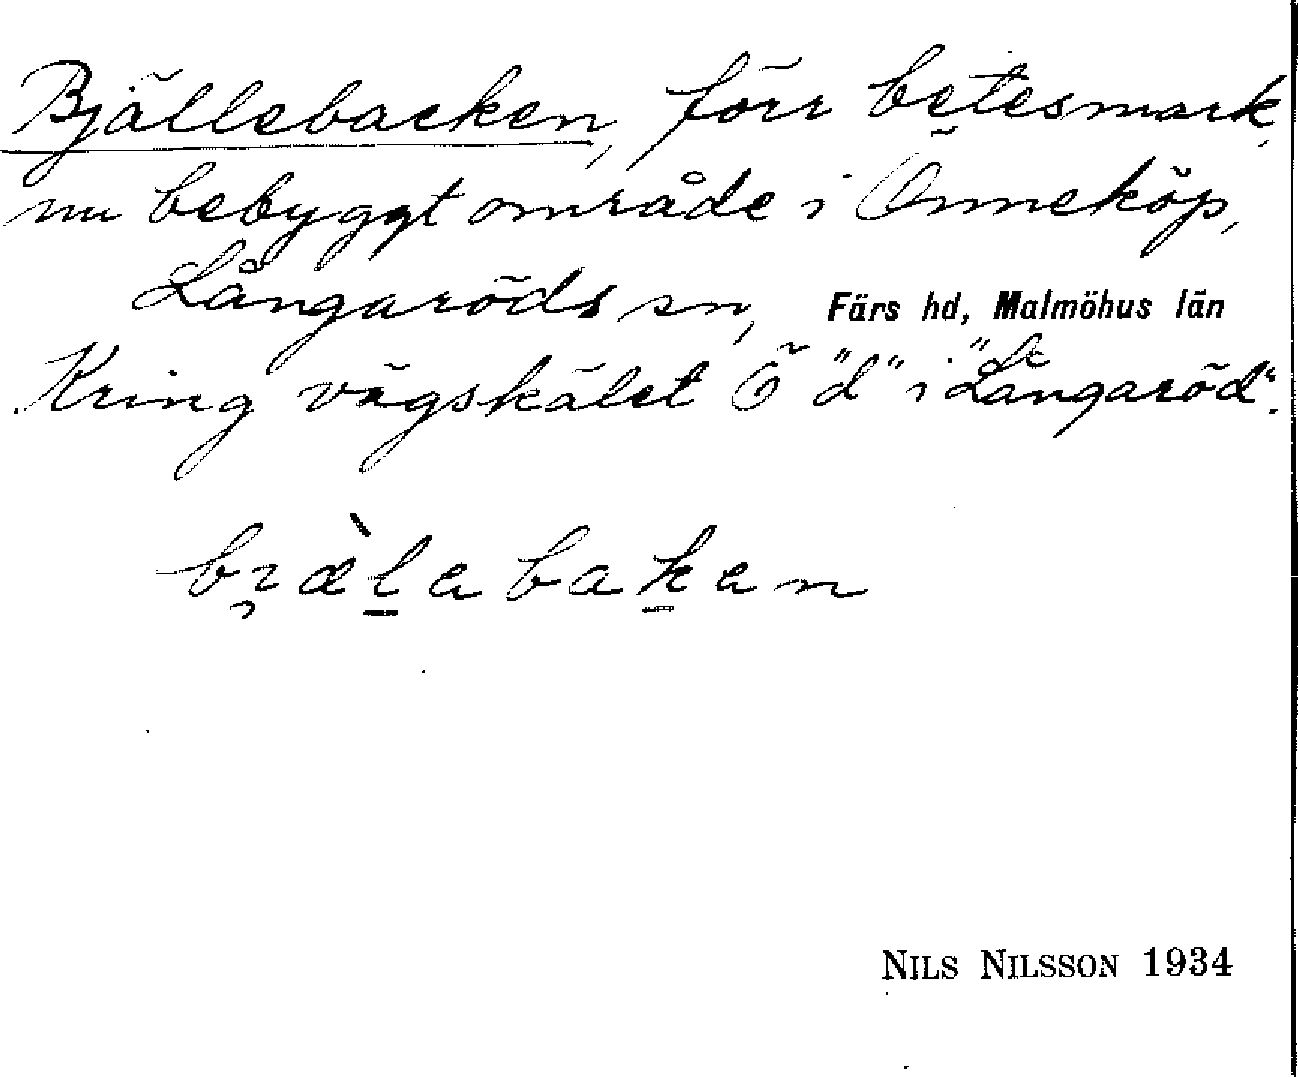 Bjällebacken, förr betesmark,
nu bebyggt område i Önneköp,
Långaröds sn, Färs hd, Malmöhus län
Kring vägskälet Ö "d" i "Långaröd".
NILS NILSSON 1934